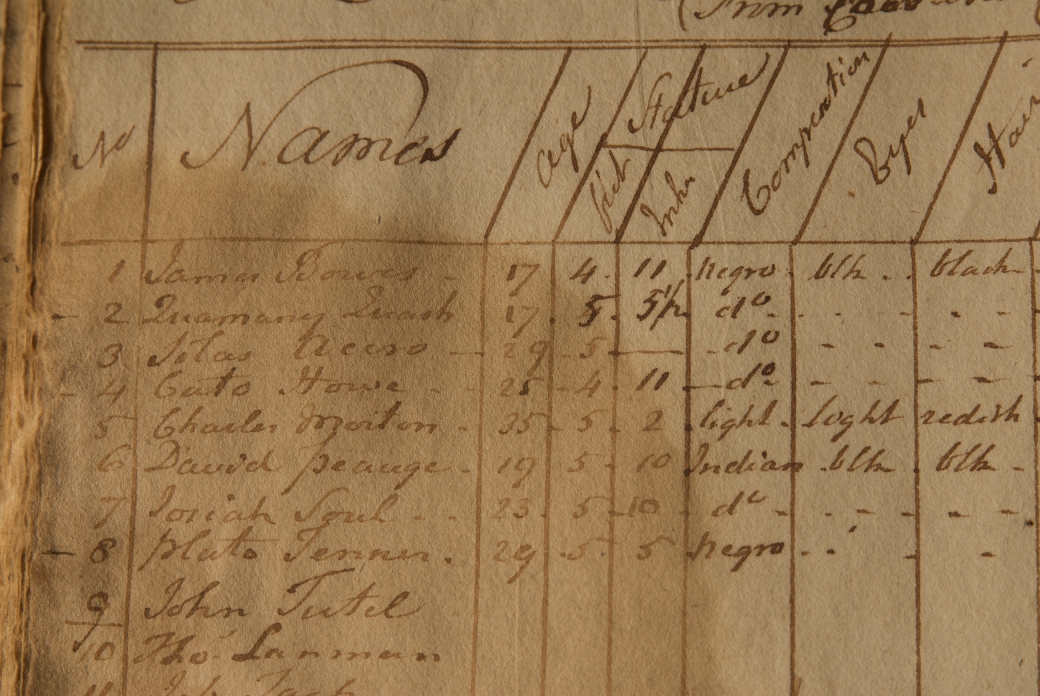 (From
No Names Age Stature Complextion Eyes Hair
feet Inhs
1 James Bowes - 17 4 - 11 Negro - blk - black -
- 2 Quamany Quash 17 - 5 5½ do - - - -
3 Silas - 29 - 5 - do - - -
- 4 Cato Howe - 25 - 4 - 11 - do - - - -
5 Charles Morton - 35 - 5 - 2 light - loght redish
6 David peauge - 19 5 - 10 Indian blk - blk -
7 Josiah Soul - - 23 - 5 - 10 - do - - - -
- 8 plato Terner - 29 - 5 - 5 Negro - - -
9 John Tutel
10 Tho Lanman
11 Jack